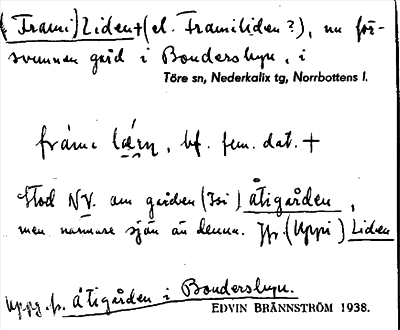 (Frami) Liden + (el. Framiliden?), nu för-
svunnen gård i Bondersbyn, i
Töre sn, Nederkalix tg, Norrbottens l.
frámi , bf. fem. dat. +
Stod NV. om gården (Isi) Åtigården,
men närmare sjön än denna. Jfr (Uppi) Liden
Uppg. fr. Åtigården i Bondersbyn.
EDVIN BRÄNNSTRÖM 1938.